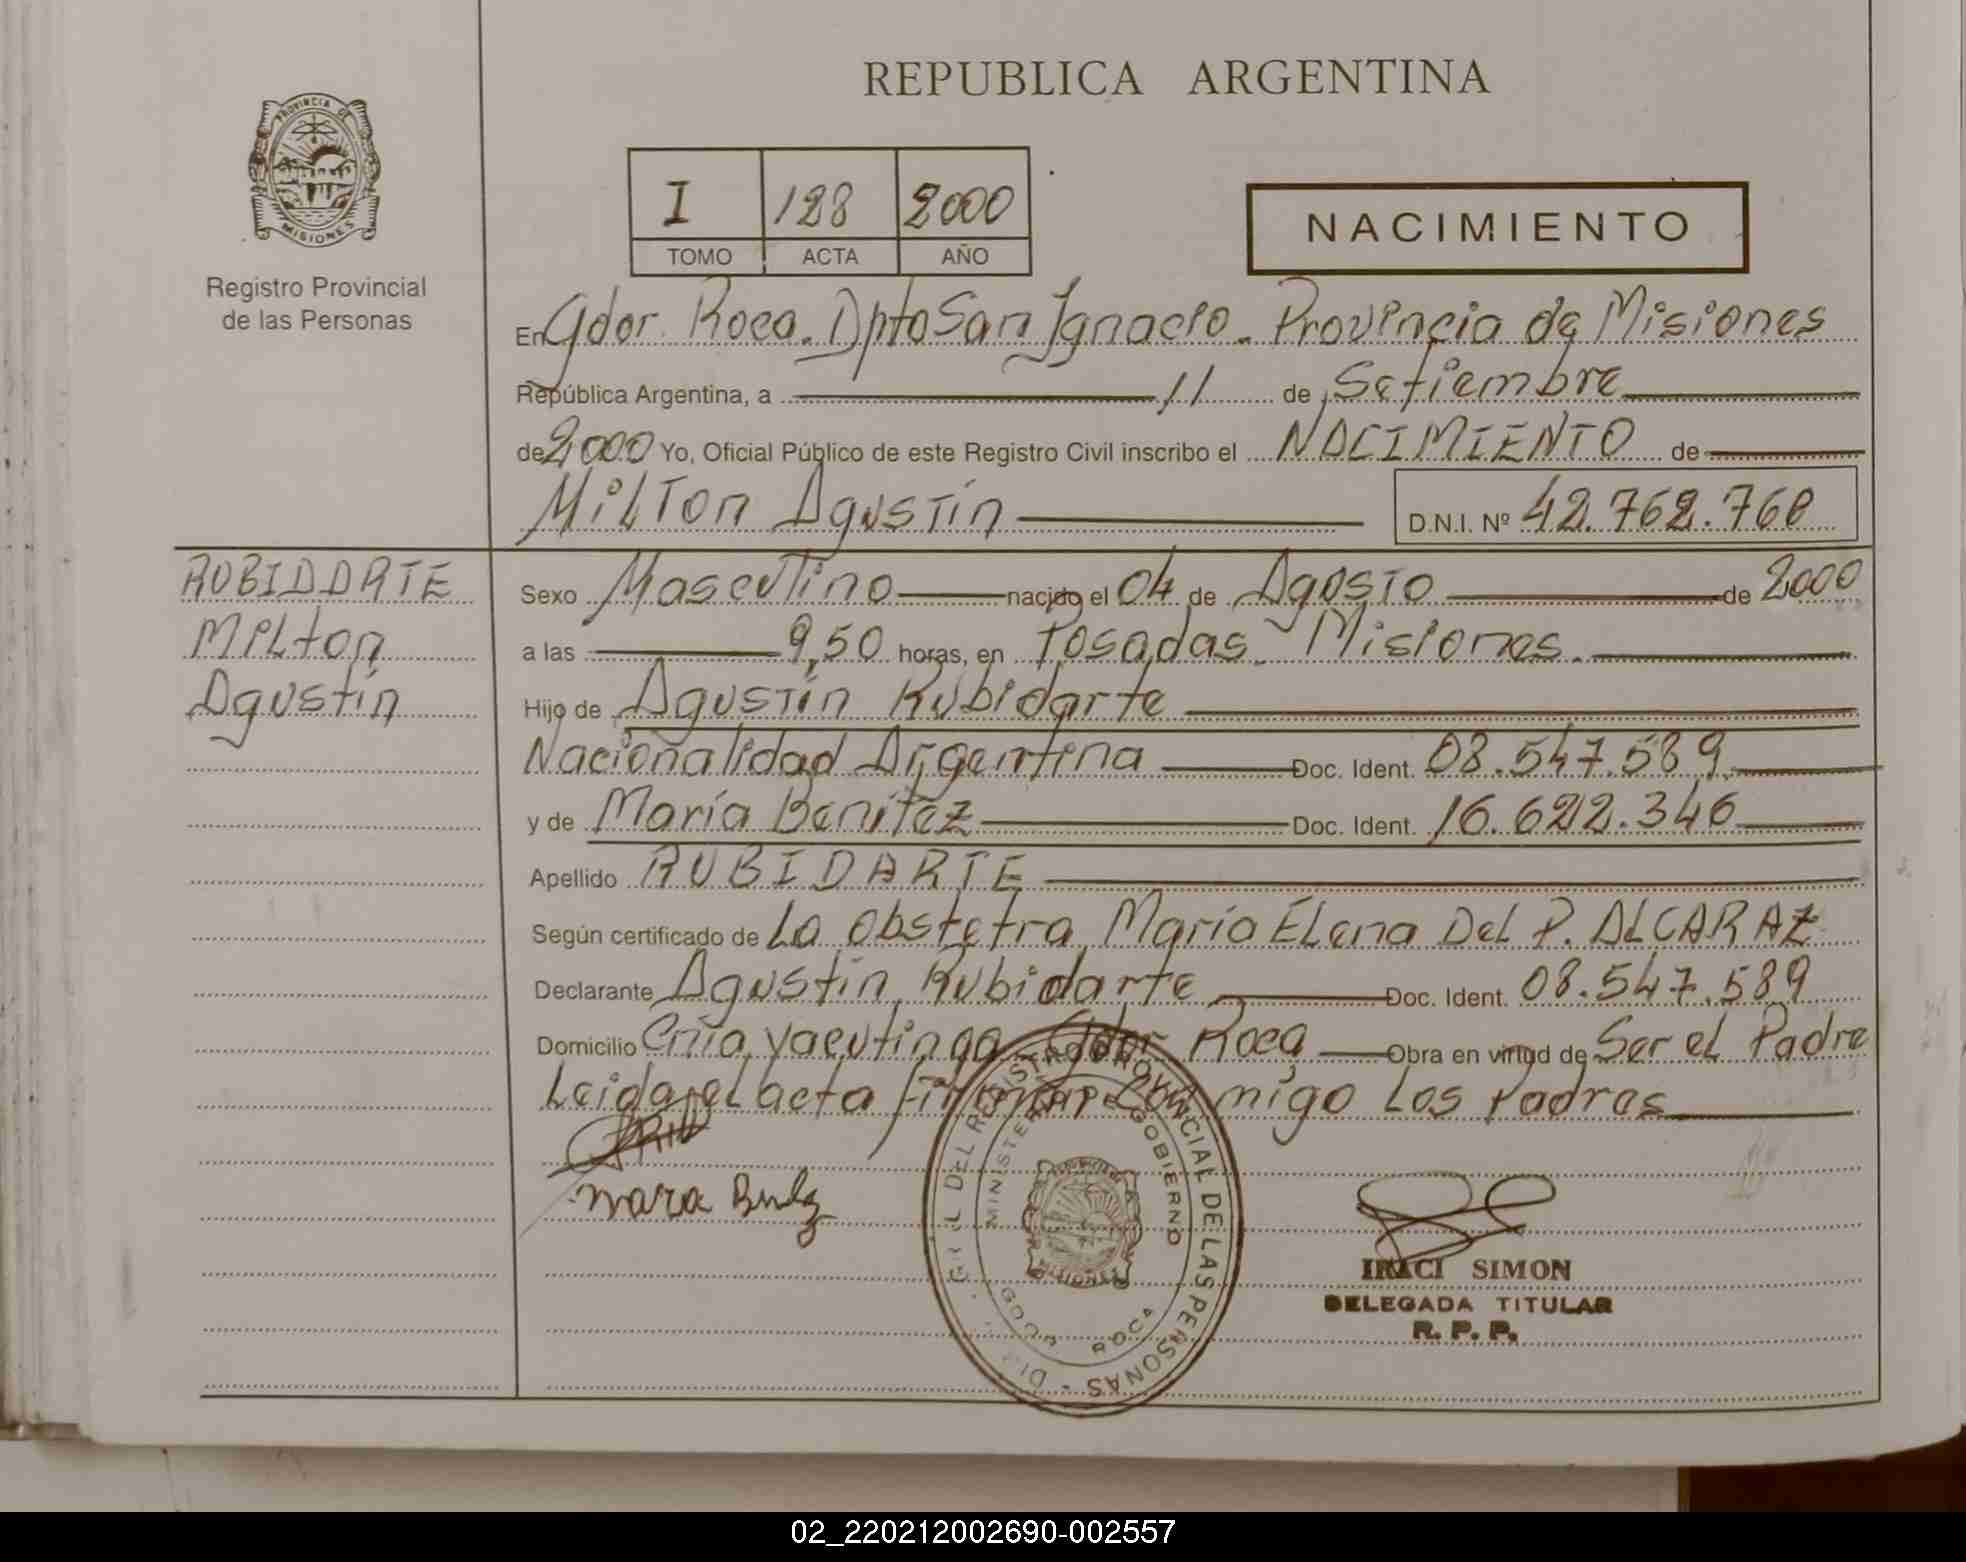 REPUBLICA ARGENTINA
PROVINCIA DE
MISIONES
Registro Provincial
de las Personas
I 128 2000
TOMO ACTA AÑO
NACIMIENTO
En Gdor. Roca. Dpto San Ignacio. Provincia de Misiones
República Argentina, a 11 de Setiembre
de 2000 Yo, Oficial Público de este Registro Civil inscribo el NACIMIENTO de
Milton Agustín D.N.I. Nº 42.762.760
RUBIDARTE
Milton
Agustín
Sexo Masculino nacido el 04 de Agosto de 2000
a las 9,50 horas, en Posadas - Misiones.
Hijo de Agustín Rubidarte
Nacionalidad Argentina Doc. Ident. 08.547.589
y de María Benítez Doc. Ident. 16.622.346
Apellido RUBIDARTE
Según certificado de La obstetra María Elena Del P. ALCARAZ
Declarante Agustín Rubidarte Doc. Ident. 08.547.589
Domicilio Cnia Yacutinga - Gdor Roca Obra en virtud de Ser el Padre
Leida el acta firman conmigo Los Padres
DEL REGISTRO PROVINCIAL DE LAS PERSONAS
MINISTERIO GOBIERNO
MISIONES
ROCA
IRACI SIMON
DELEGADA TITULAR
R. P. P.
02_220212002690-002557